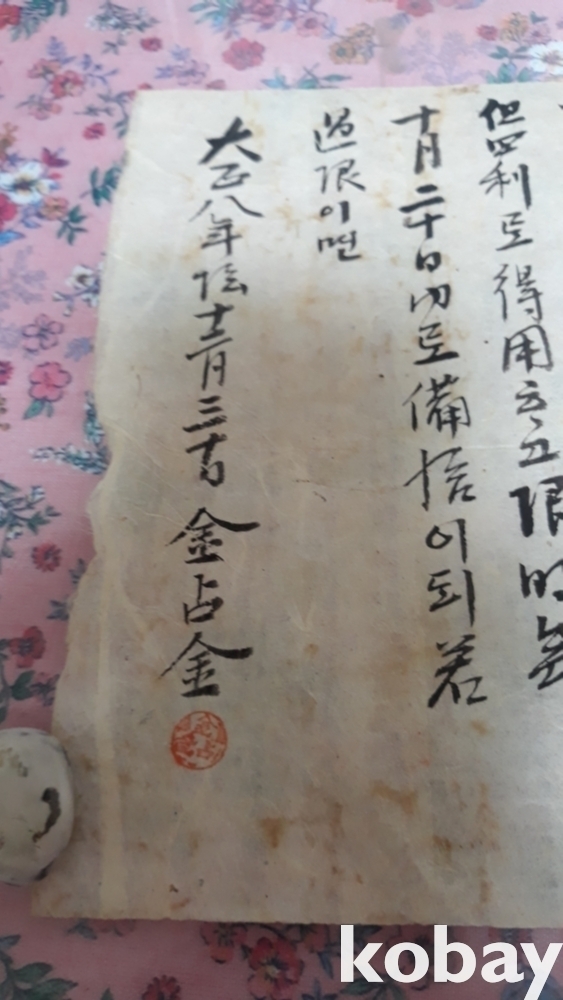 但四利로得用고限明年
十月二十日內로備給이되若
過限이면
大正八年陰十二月三十日 金占金
kobay